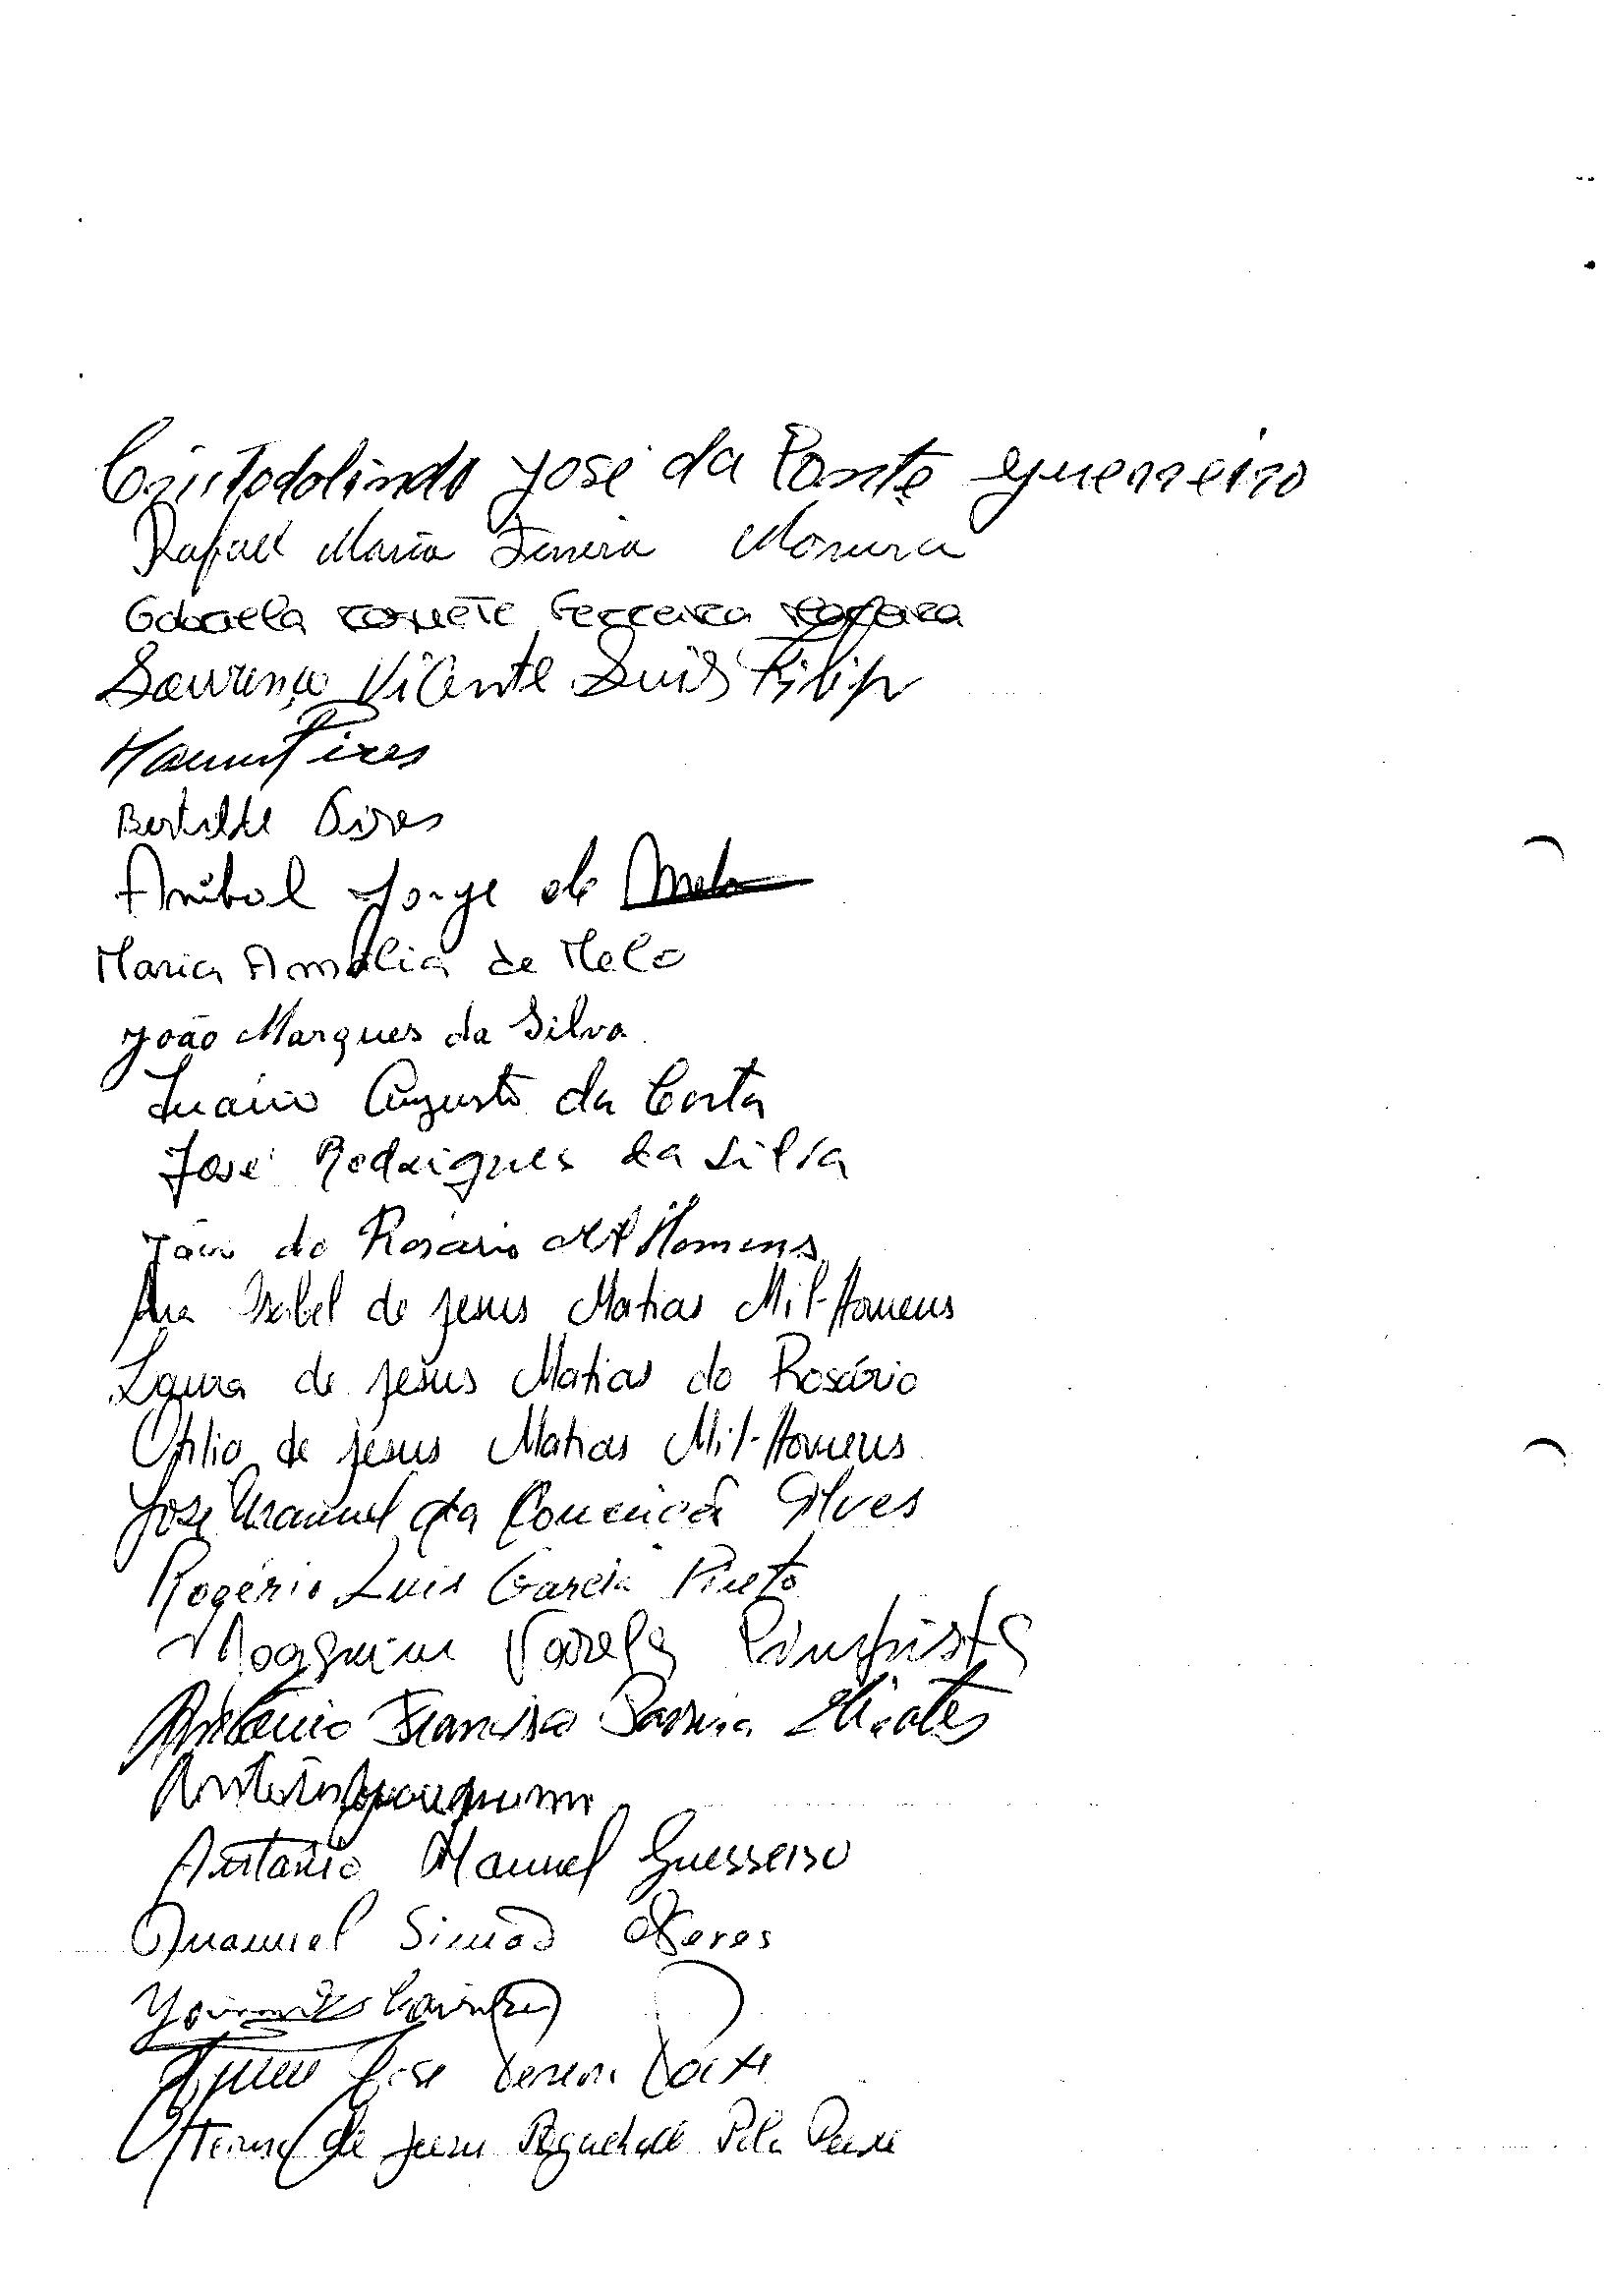 Cristodolindo José da Ponte Guerreiro
Rafael Maria Ferreira Moreira
Gabriela Ferreira
Lourenço Vicente Luis Filipe
Manuel Pires
Bertilde Pires
Anibal Jorge de Melo
Maria Amalia de Melo
João Marques da Silva
Augusto da Costa
José Rodrigues da Silva
João do Rosário Mil Homens
Ana Isabel de Jesus Matias Mil-Homens
Laura de Jesus Matias do Rosário
de Jesus Matias Mil-Homens
José Manuel da Conceição Alves
Rogério Luis Garcia
Varela
António Francisco
António Joaquim
António Manuel Guerreiro
Manuel Simão
José Pereira
de Jesus